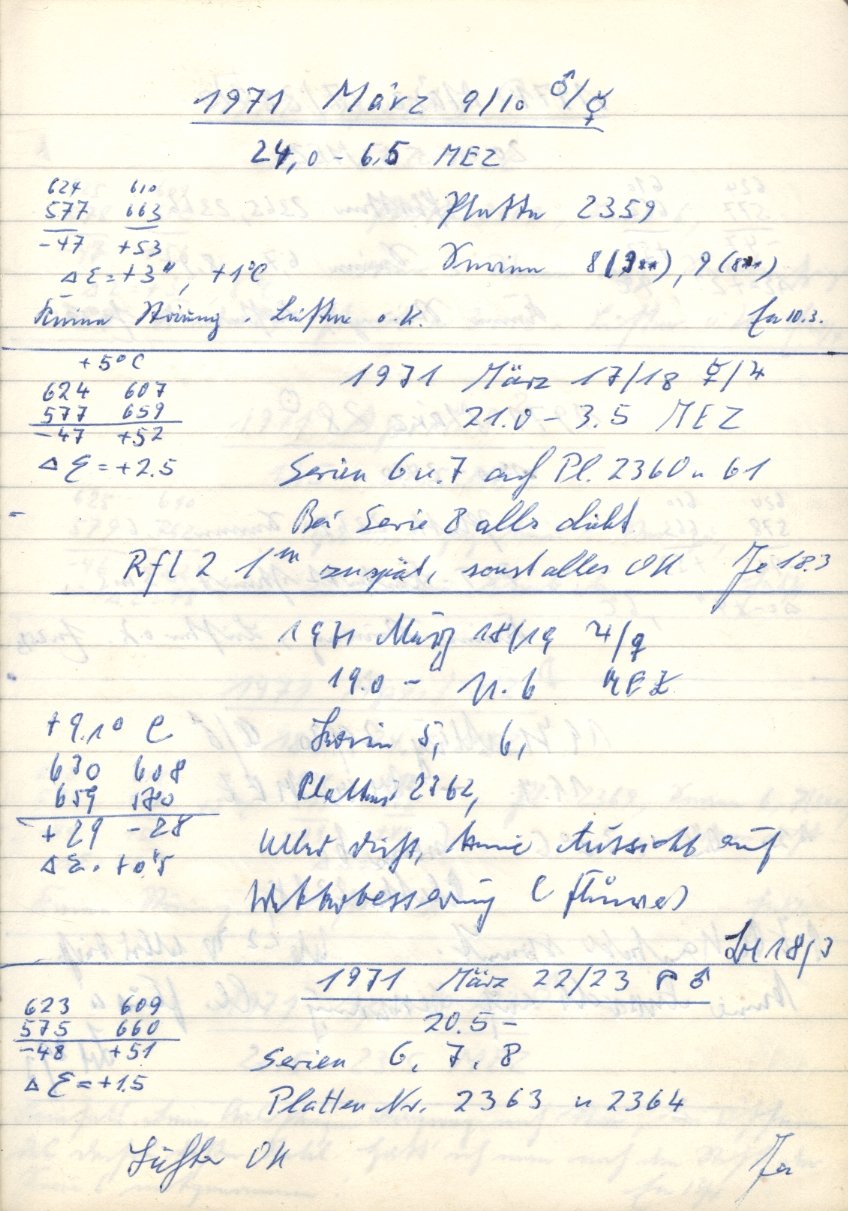 1971 März 9/10 ♂/☿
24,0 - 6.5 MEZ
624 610
577 663 Platte 2359
-47 +53
Δε = +3", +1°C Serien 8(3**), 9(8**)
Keine Störung. Lüfter o.K. 10.3.
+5°C
624 607 1971 März 17/18 ☿/♃
577 659 21.0 - 3.5 MEZ
-47 +52
Δε = +2.5 Serien 6 u. 7 auf Pl. 2360 u 61
Bei Serie 8 alles dicht.
Rfl 2 1ᵐ zu spät, sonst alles OK Je 18.3
1971 März 18/19 ♃/♀
19.0 - MEZ
+9.1° C Serien 5, 6,
630 608
659 580 Platten 2362,
+29 -28
Δε = +0"5 Alles dicht, keine Aussicht auf
Wetterbesserung
18/3
1971 März 22/23 ☾ ♂
623 609
575 660 20.5 -
-48 +51 Serien 6, 7, 8
Δε = +1.5
Platten Nr. 2363 u 2364
Lüfter OK Je